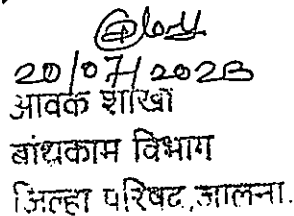 20/07/2023
आवक शाखा
बांधकाम विभाग
जिल्हा परिषद, जालना.